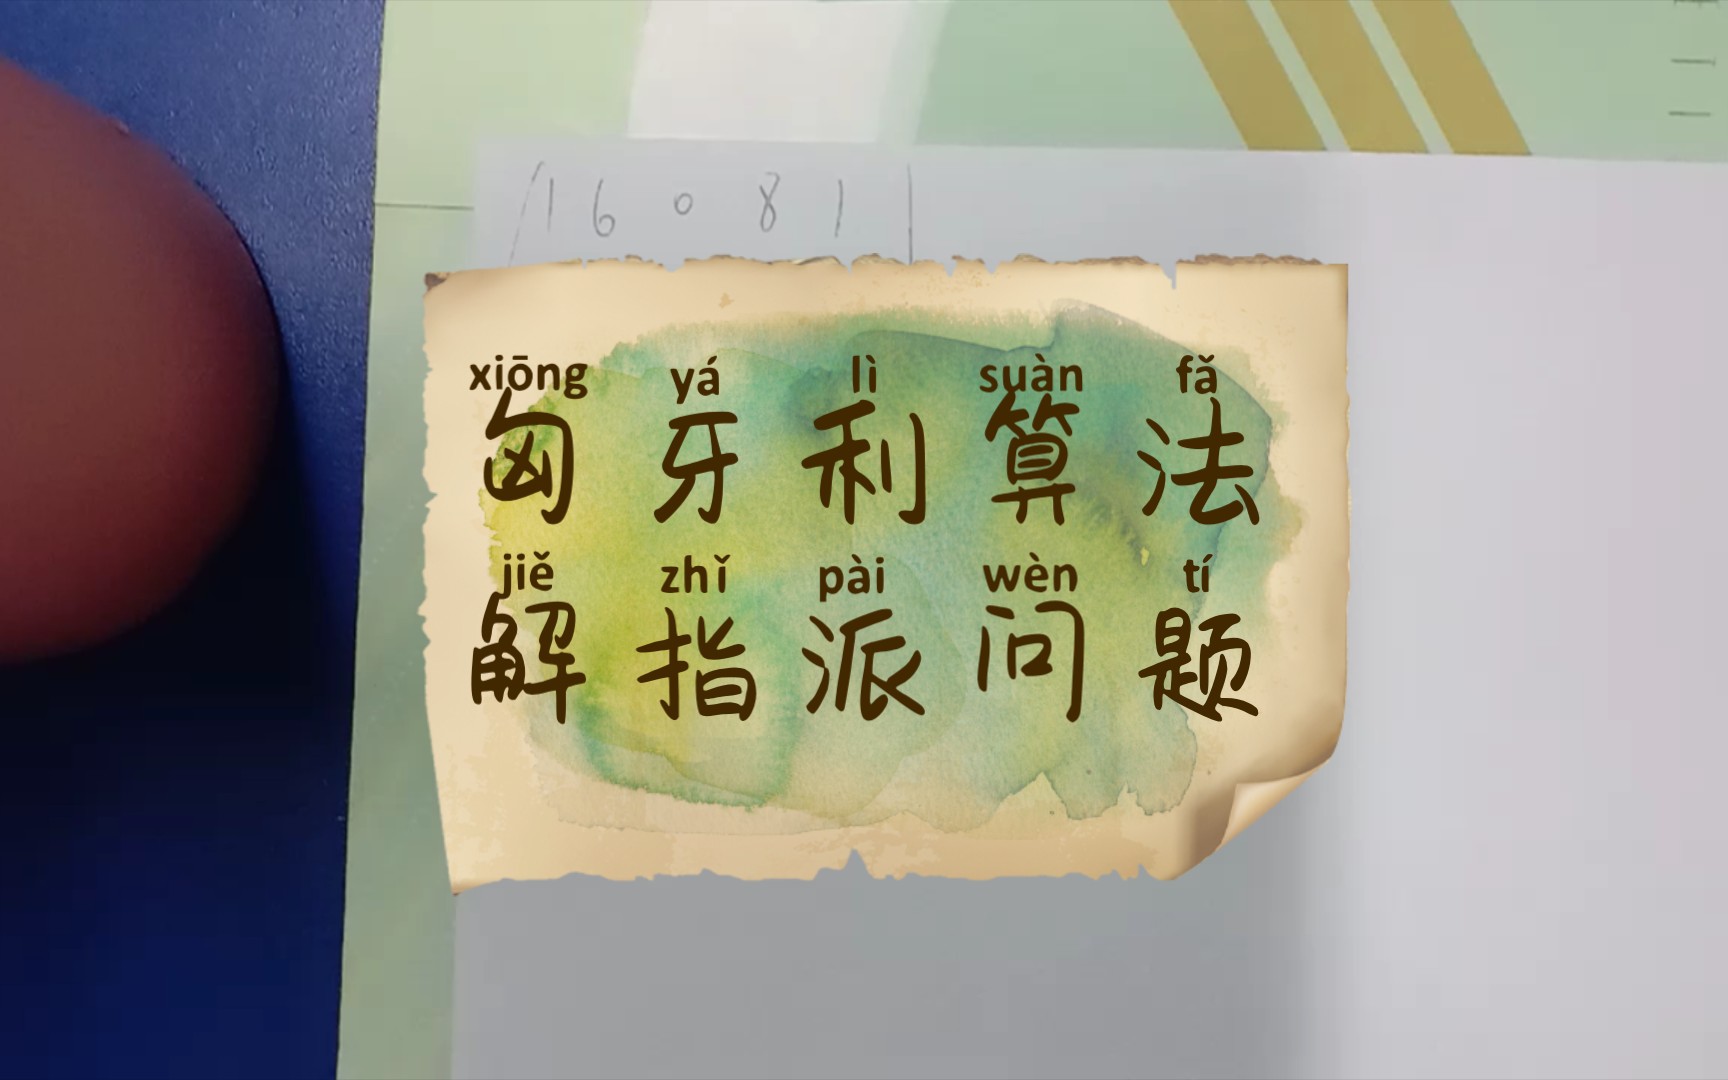 1 6 0 8 1
xiōng yá lì suàn fǎ
匈牙利算法
jiě zhǐ pài wèn tí
解指派问题